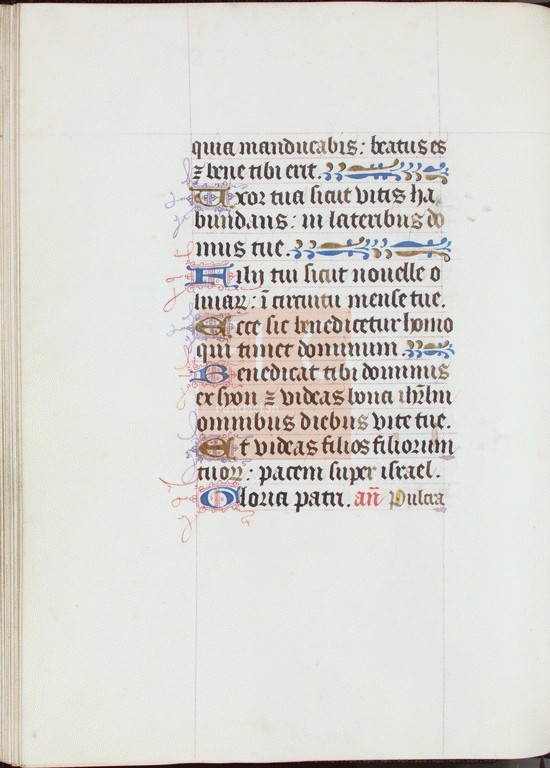 quia manducabis: beatus es
⁊ bene tibi erit.
Uxor tua sicut vitis ha
bundans: in lateribus do
mus tue.
Filij tui sicut nouelle o
liuaꝝ: ī circuitu mense tue.
Ecce sic benedicetur homo
qui timet dominum.
Benedicat tibi dominus
ex syon ⁊ videas bona ihr̄lm
omnibus diebus vite tue.
Et videas filios filiorum
tuoꝝ: pacem super israel.
Gloria patri. an̄ Pulcra